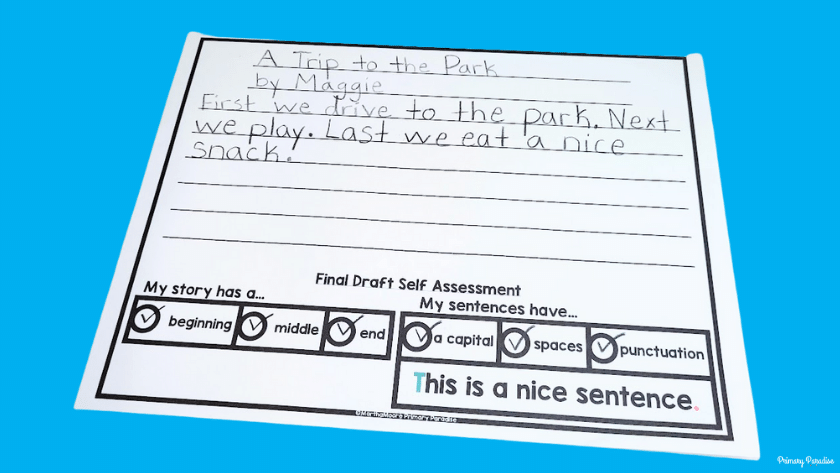 A Trip to the Park
by Maggie
First we drive to the park. Next
we play. Last we eat a nice
snack.
Final Draft Self Assessment
My story has a...
beginning
middle
end
My sentences have...
a capital
spaces
punctuation
This is a nice sentence.
©MarthaMoore Primary Paradise
Primary Paradise